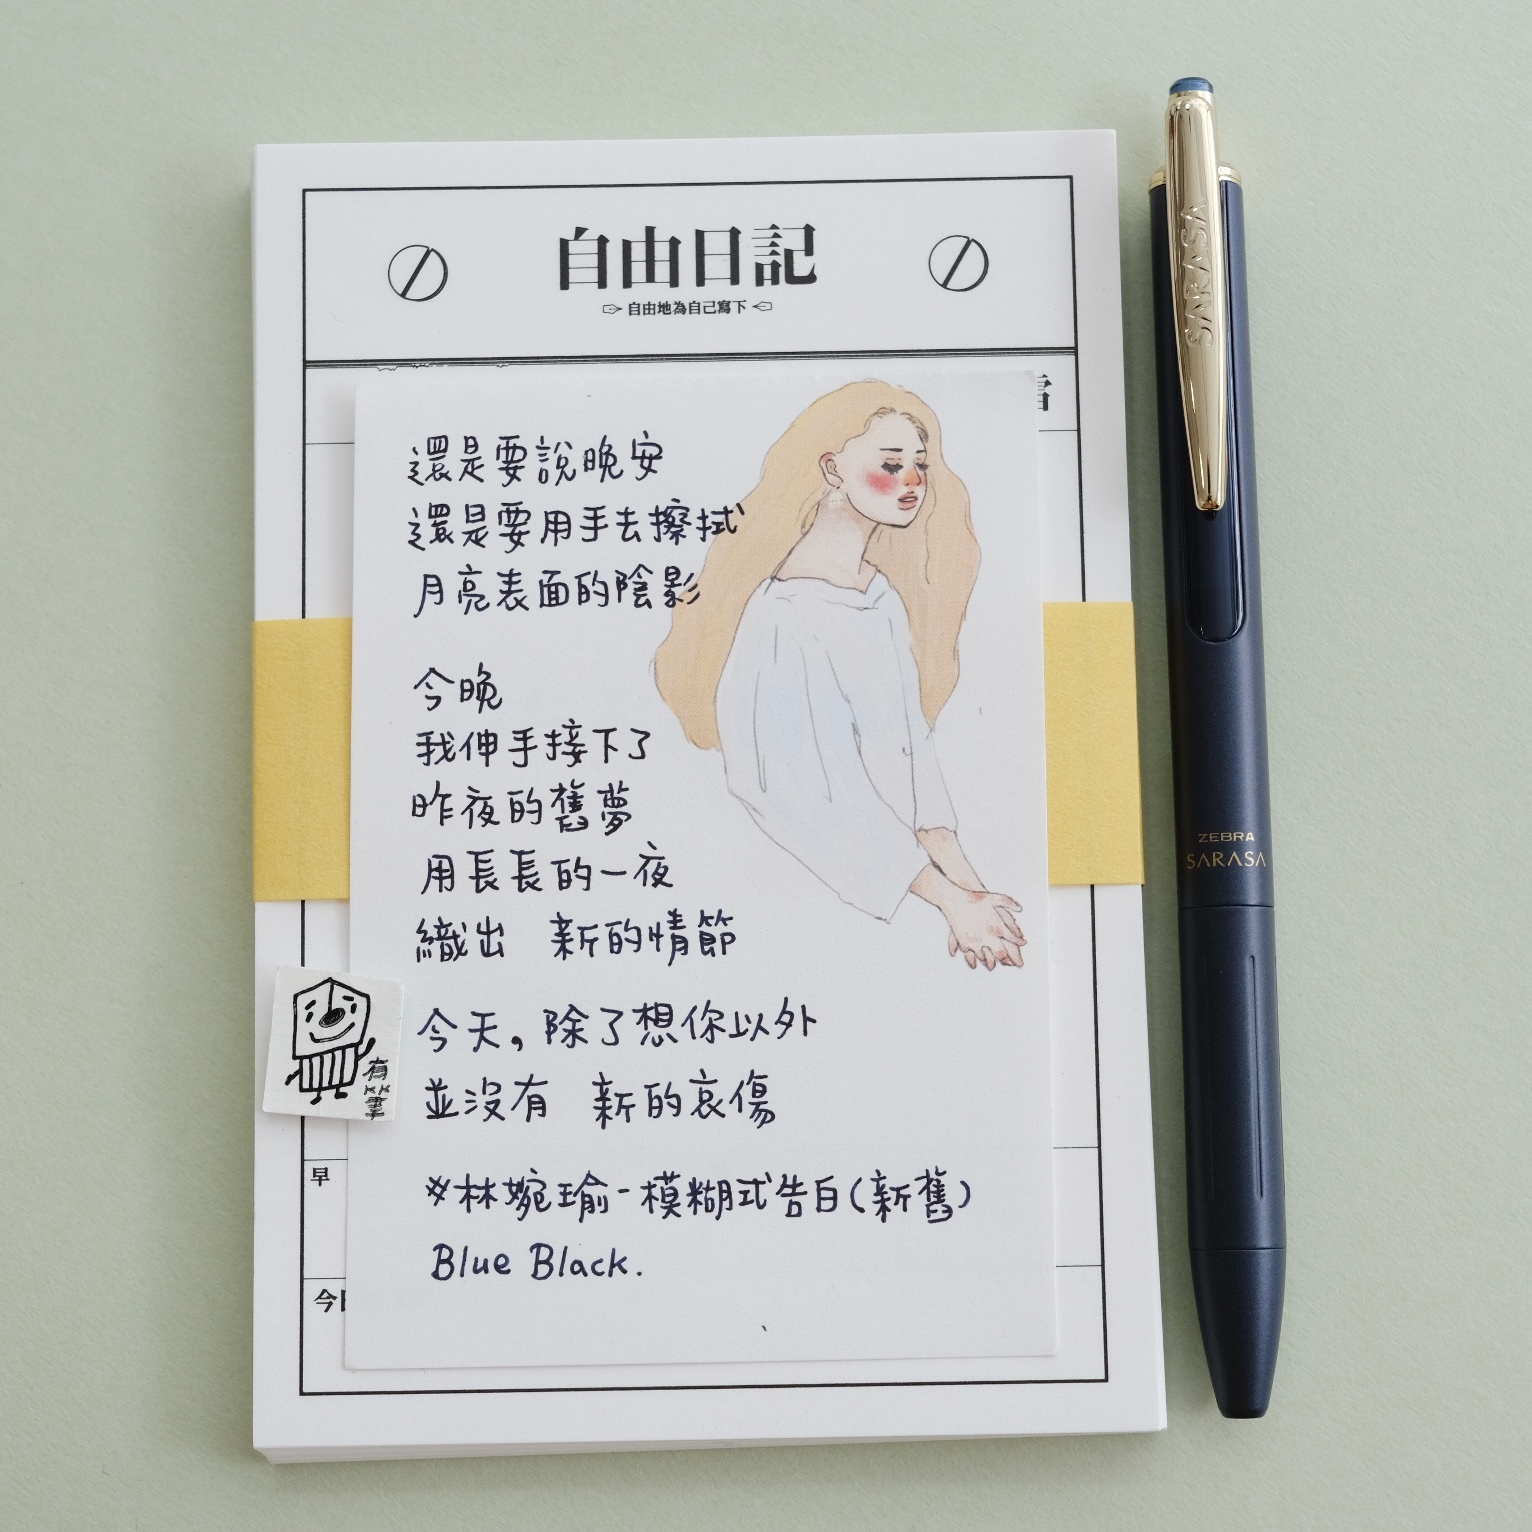 自由日記
自由地為自己寫下
還是要說晚安
還是要用手去擦拭
月亮表面的陰影
今晚
我伸手接下了
昨夜的舊夢
用長長的一夜
織出 新的情節
今天，除了想你以外
並沒有 新的哀傷
※林婉瑜-模糊式告白(新舊)
Blue Black.
有筆
早
今日
SARASA
ZEBRA
SARASA